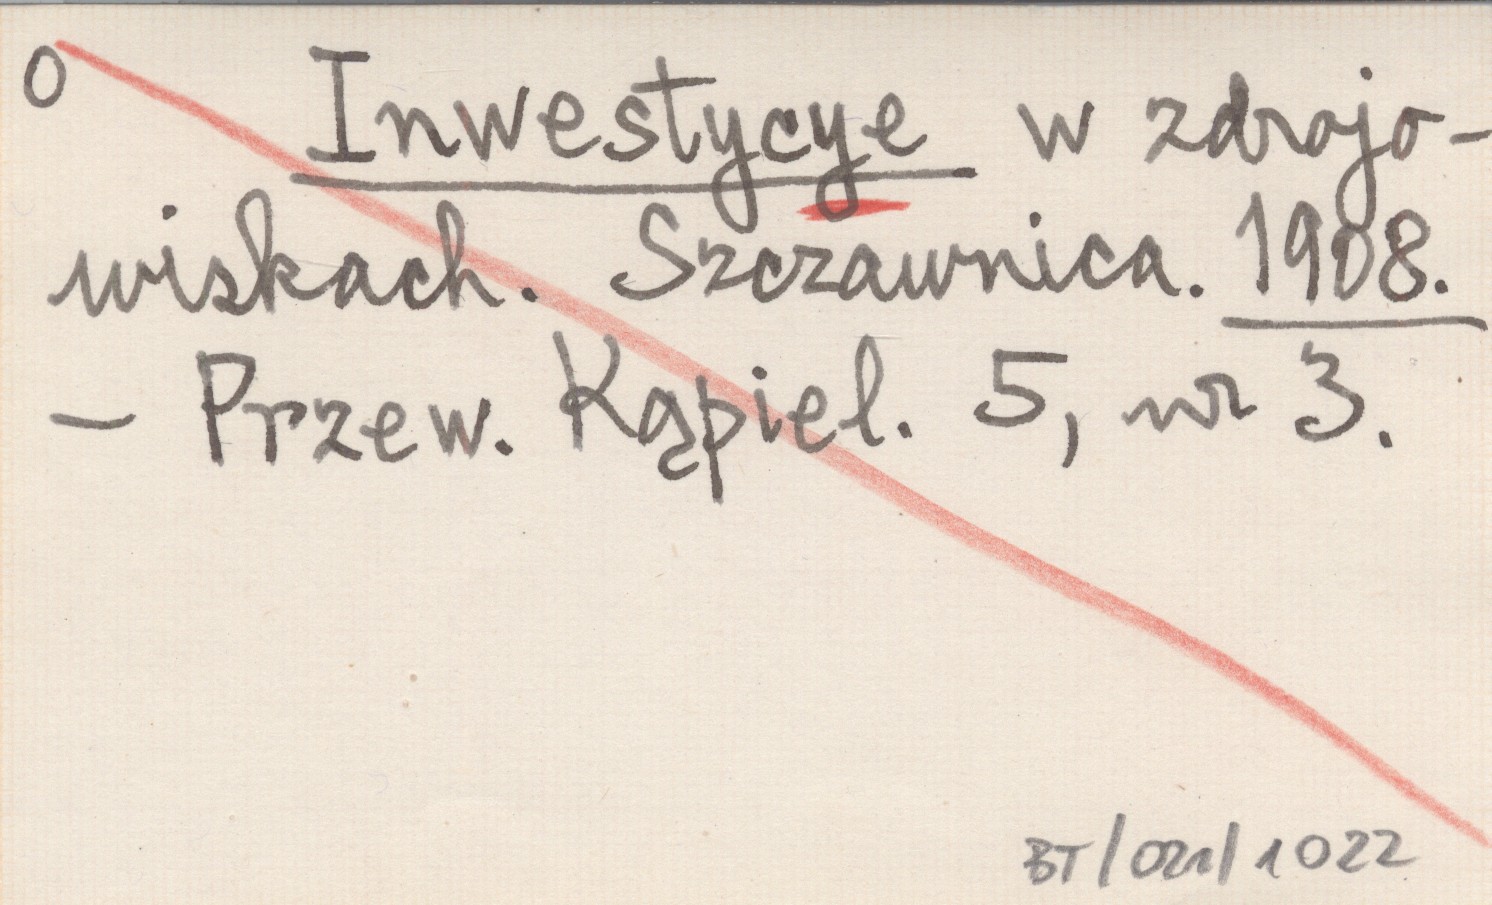 0 Inwestycye w zdrojo-
wiskach. Szczawnica. 1908.
- Przew. Kąpiel. 5, nr 3.
BT/021/1022